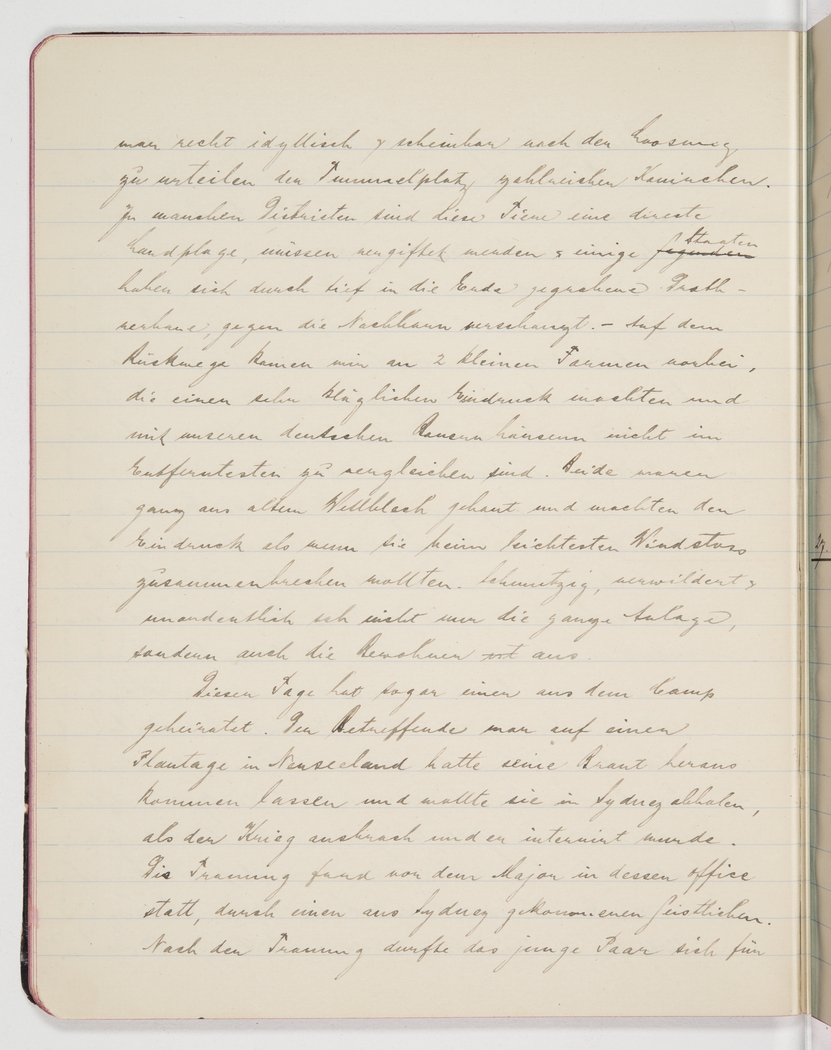 war recht idyllisch & scheinbar nach der Loosung
zu urteilen der Tummelplatz zahlreicher Kaninchen.
In manchen Distrikten sind diese Tiere eine direkte
Landplage, müssen vergiftet werden & einige Gegenden Staaten
haben sich durch tief in die Erde gegrabene Drath-
verhaue, gegen die Nachbarn verschanzt. - Auf dem
Rückwege kamen wir an 2 kleinen Farmen vorbei,
die einen sehr kläglichen Eindruck machten und
mit unseren deutschen Bauernhäusern nicht im
Entferntesten zu vergleichen sind. Beide waren
ganz aus altem Wellblech gebaut und machten den
Eindruck als wenn sie beim leichtesten Windstoss
zusammenbrechen wollten. Schmutzig, verwildert &
unordentlich sah nicht nur die ganze Anlage,
sondern auch die Bewohner aus.
Dieser Tage hat sogar einer aus dem Camp
geheiratet. Der Betreffende war auf einer
Plantage in Neuseeland hatte seine Braut heraus
kommen lassen und wollte sie in Sydney abholen,
als der Krieg ausbrach und er internirt wurde.
Die Trauung fand vor dem Major in dessen office
statt, durch einen aus Sydney gekommenen Geistlichen.
Nach der Trauung durfte das junge Paar sich für
27.